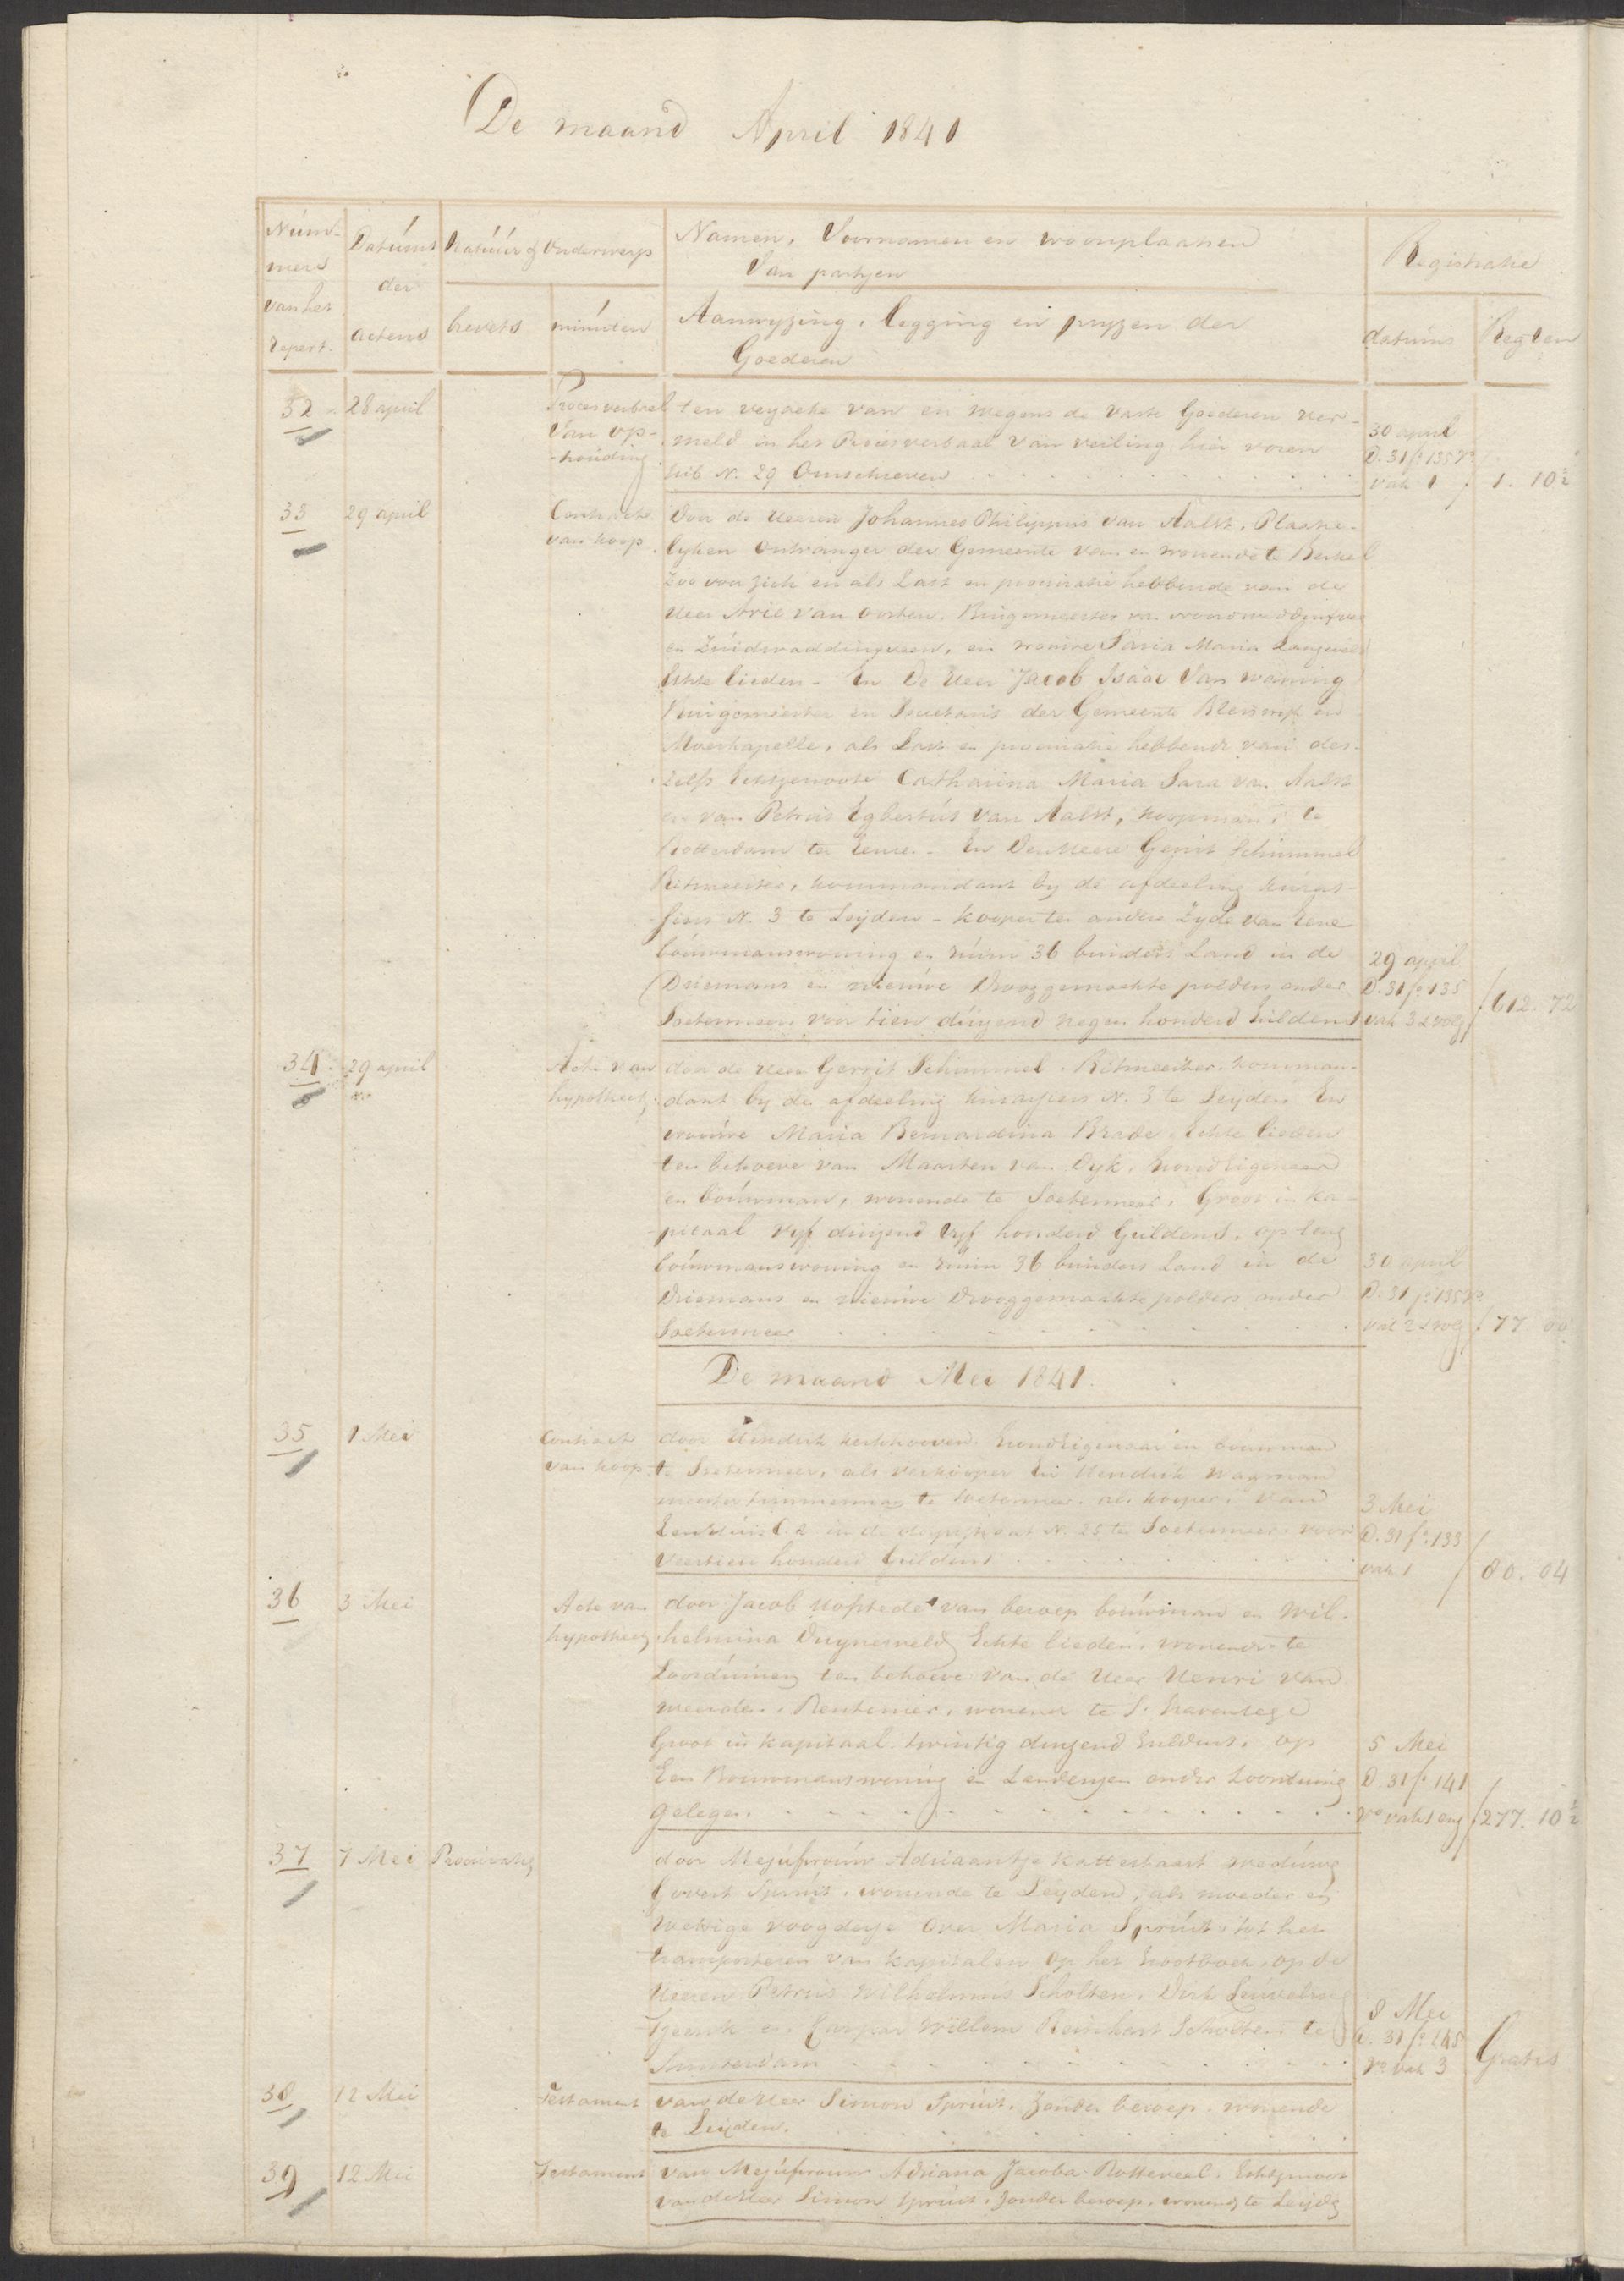 De maand April 1841
Núm-
mers
van het
repert.
Datúms
der
actens
Natúúr of Onderwerp
brevets
minúten
Namen, Voornamen en woonplaatsen
Van partijen
Aanwyzing, legging en pryzen der
Goederen
Registratie
datums
Regten
32
28 april
Procesverbael
Van op-
-houding
ten reqeste van en wegens de vaste Goederen ver-
meld in het Procesverbaal van veiling hier voren
sub N. 29 Omschreven
30 april
D. 31 f. 135 V.
vak 1
1. 10½
33
29 april
Contracts
van koop
Door de Heeren Johannes Philippus van Aalst, Plaatse-
lyken Ontvanger der Gemeente van en wonende te Berkel
Zoo voor zich en als Last en procuratie hebbende van de
Heer Arie van Oosten, Burgemeester van Noordwaddinxveen
en Zúidwaddinxveen, en vrouwe Saria Maria Langeveld
Echte lieden - En De Heer Jacob Isäac Van Waning
Burgemeester en Secretaris der Gemeente Bleiswyk en
Moerkapelle, als Last en procuratie hebbende van des-
zelfs Echtgenoote Catharina Maria Sara van Aalst
en van Petrus Egbertús van Aalst, koopman te
Rotterdam ter Eenre - En Den Heere Gerrit Schimmel
Ritmeester, kommandant by de afdeeling kúras-
siers N. 3 te Leyden - kooper ter andere Zyde van Eene
boúwmanswoning en rúim 36 bunders Land in de
Driemans en nieúwe Drooggemaakte polders onder
Soetermeer, voor tien dúizend negen honderd Guldens
29 april
D. 31 f. 135
vak 3 & volg
612. 72
34
29 april
Acte van
hypotheek
door de Heer Gerrit Schimmel Ritmeester, komman-
dant by de afdeeling kúrassiers N. 3 te Leyden En
vrouwe Maria Bernardina Brade Echte lieden
ten behoeve van Maarten van Dyk, Grondeigenaar
en boúwman, wonende te Soetermeer, Groot in ka-
-pitaal vyf duizend vyf honderd Guldens, op
boúwmanswoning en rúim 36 bunders Land in de
Driemans en nieúwe drooggemaakte polders onder
Soetermeer
30 april
D. 31 f. 135 V.
vak 2 & volg
77
De maand Mei 1841
35
1 Mei
Contract
van koop
door Hendrik Kerkhoeven Grondeigenaar en boúwman
te Soetermeer, als verkooper En Hendrik Wagman
meester timmerman te Soetermeer, als kooper, van
Een Húis in de N. 25 te Soetermeer, voor
Veertien honderd Guldens
3 Mei
D. 31 f. 133
vak 1
80. 04
36
3 Mei
Acte van
hypotheek
door Jacob Hofstede van beroep boúwman en Wil-
helmina Duynesveld Echte lieden, wonende te
Loosdúinen ten behoeve van de Heer Henri van
Rentenier, wonend te S. Gravenhage
Groot in kapitaal twintig duizend Guldens, op
Een Bouwmanswoning en Landeryen onder Loosduinen
gelegen
5 Mei
D. 31 f. 141
Vo vak 1 env
277. 10½
37
7 Mei
Procúratie
door Mejufvroúw Adriaantje Kattestaart wedúwe
Govert Sprúit, wonende te Leyden, als moeder en
Wettige voogdesse over Maria Sprúit, tot het
transporteren van kapitalen op het Grootboek, op de
Heeren Petrus Wilhelmus Scholten, Dirk Leúvelink
Tjeenk en Caspar Willem Reinhart Scholten te
Amsterdam
8 Mei
D. 31 f. 145
Vo vak 3
Gratis
38
12 Mei
Testament
van de Heer Simon Sprúit, zonder beroep, wonende
te Leyden.
39
12 Mei
Testament
van Mejúfvrouw Adriana Jacoba Rotteveel, Echtgenoot
van de Heer Simon Sprúit, zonder beroep, wonend te Leyde